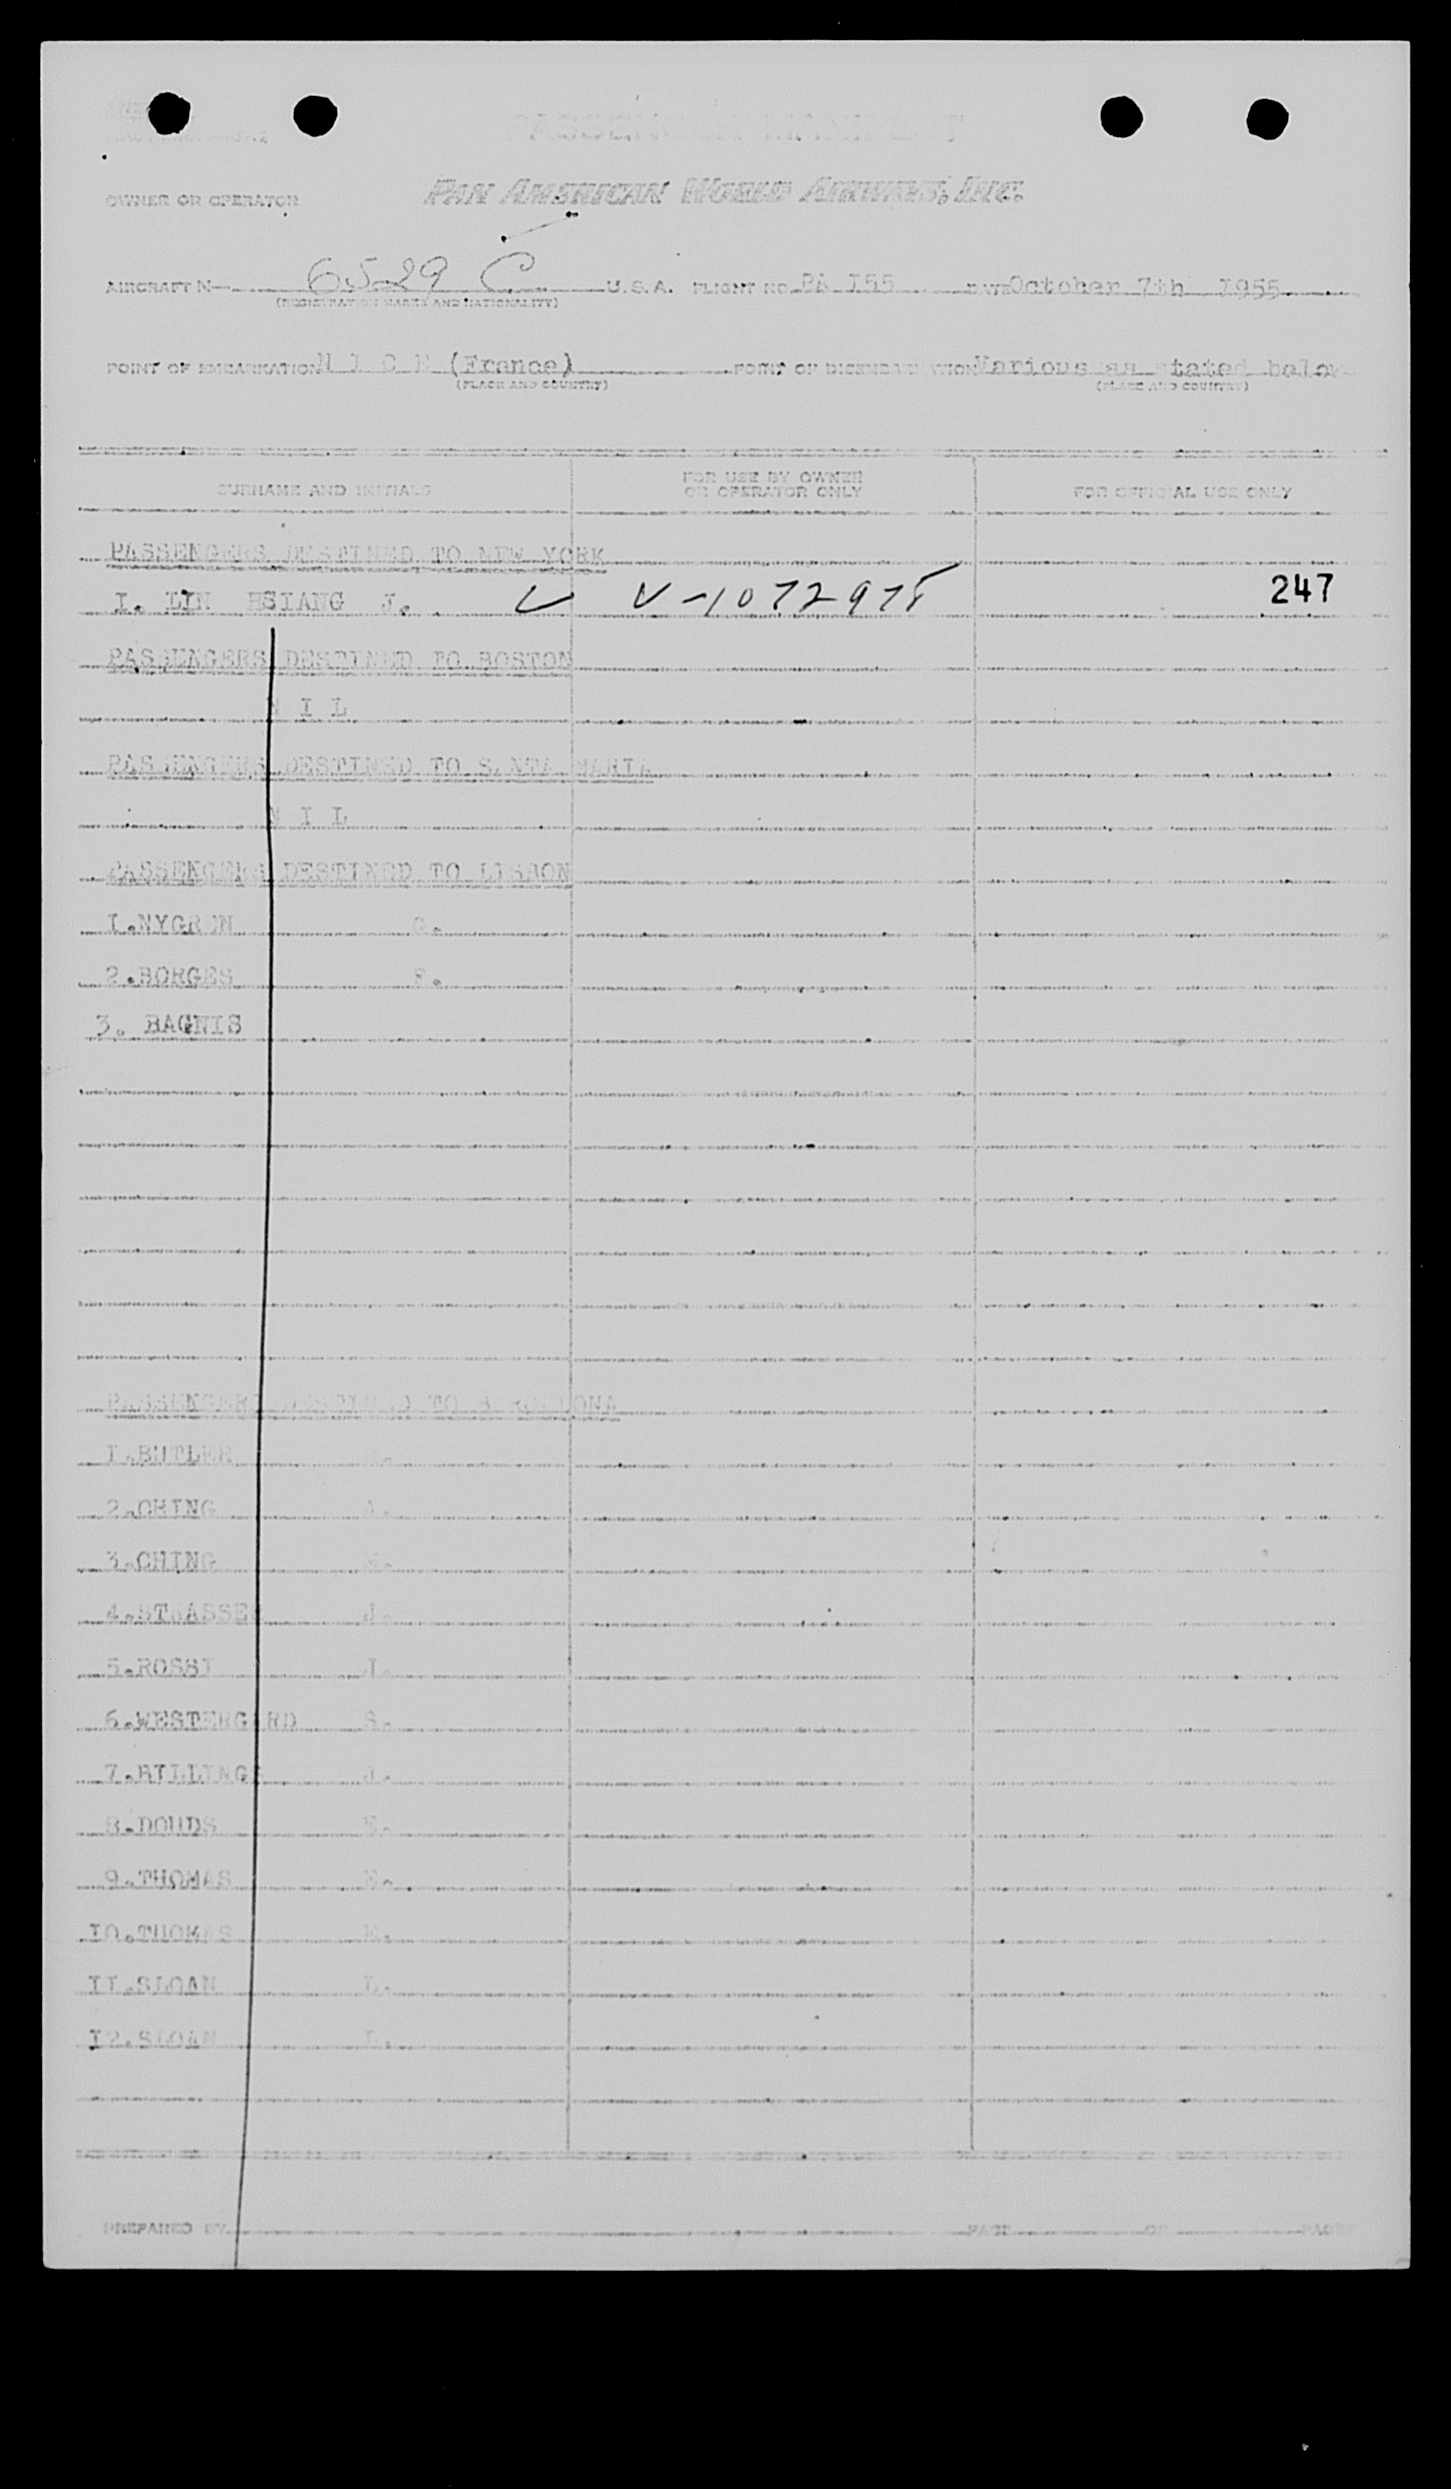 OWNER OR OPERATOR PAN AMERICAN WORLD AIRWAYS, INC.
AIRCRAFT N— 6529 C U. S. A. FLIGHT NO. PA 155 DATE October 7th 1955
(REGISTRATION MARKS AND NATIONALITY)
POINT OF EMBARKATION N I C E (France) POINT OF DISEMBARKATION Various as stated below
(PLACE AND COUNTRY) (PLACE AND COUNTRY)
SURNAME AND INITIALS FOR USE BY OWNER OR OPERATOR ONLY FOR OFFICIAL USE ONLY
PASSENGERS DESTINED TO NEW YORK
I. LIN HSIANG J. V-1072975 247
PASSENGERS DESTINED TO BOSTON
N I L
PASSENGERS DESTINED TO SANTA MARIA
N I L
PASSENGERS DESTINED TO LISBON
I.NYGREN G.
2.BORGES
3. BAGNIS
PASSENGERS DESTINED TO BARCELONA
I.BUTLER
2.CHING A.
3.CHING
4.STRASSER J.
5.ROSSI I.
6.WESTERGARD S.
7.BILLINGS J.
8.DOUDS E.
9.THOMAS E.
IO.THOMAS
II.SLOAN L.
I2.SLOAN L.
PREPARED BY PAGE OF PAGES